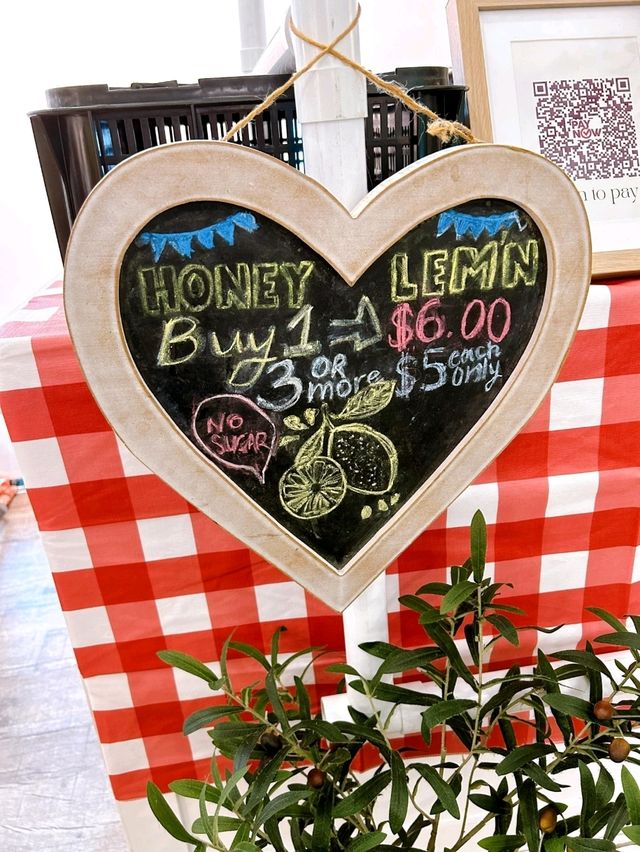 HONEY LEM'N
Buy 1 → $6.00
3 OR more $5 each only
NO
SUGAR
PAY
NOW
n to pay